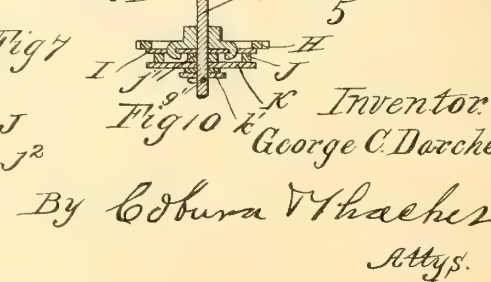 5
Fig 7
H
I
J
j'
g'
K
k'
Fig 10
J
J²
Inventor.
George C. Dorche
By Coburn & Thacher
Attys.